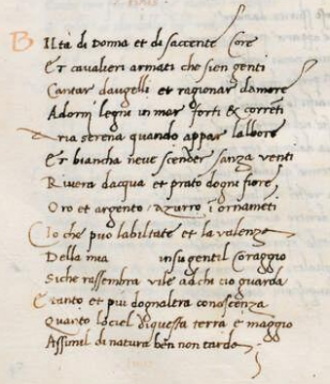 Bilta di Donna et di saccente Core
Et cavalieri armati che sien genti
Cantar daugelli et ragionar damore
Adorni legni in mar forti & correnti
Aria serena quando appar lalbore
Et biancha neve scender sanza venti
Rivera dacqua et prato dogni fiore
Oro et argento azurro i ornameti
Cio che puo labiltate et la valenza
Della mia insu gentil Coraggio
Si che rassembra vile ad chi cio guarda
E tanto et piu dognaltra conoscenza
Quanto lociel diquessa terra è maggio
Assimil di natura ben non tarda